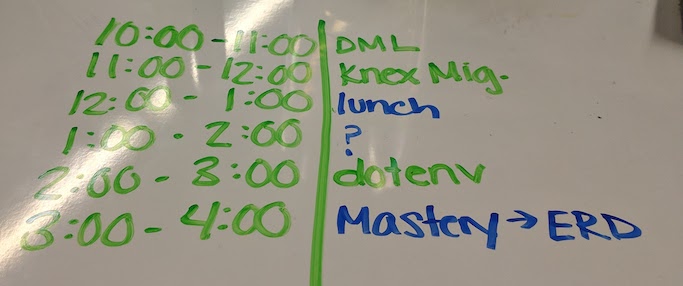 10:00 - 11:00 DML
11:00 - 12:00 Knex Mig.
12:00 - 1:00 lunch
1:00 - 2:00 ?
2:00 - 3:00 dotenv
3:00 - 4:00 Mastery → ERD